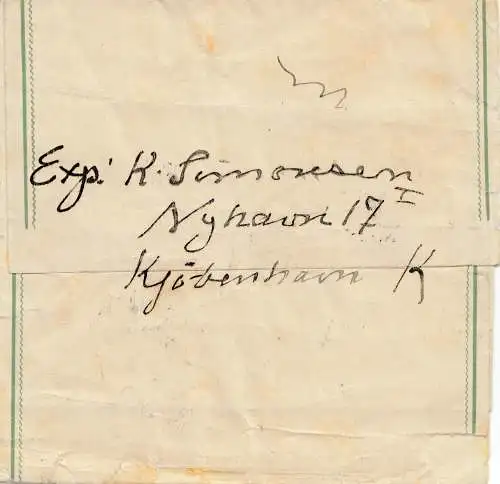 Exp: K. Simonsen
Nyhavn 17 I
Kjöbenhavn K